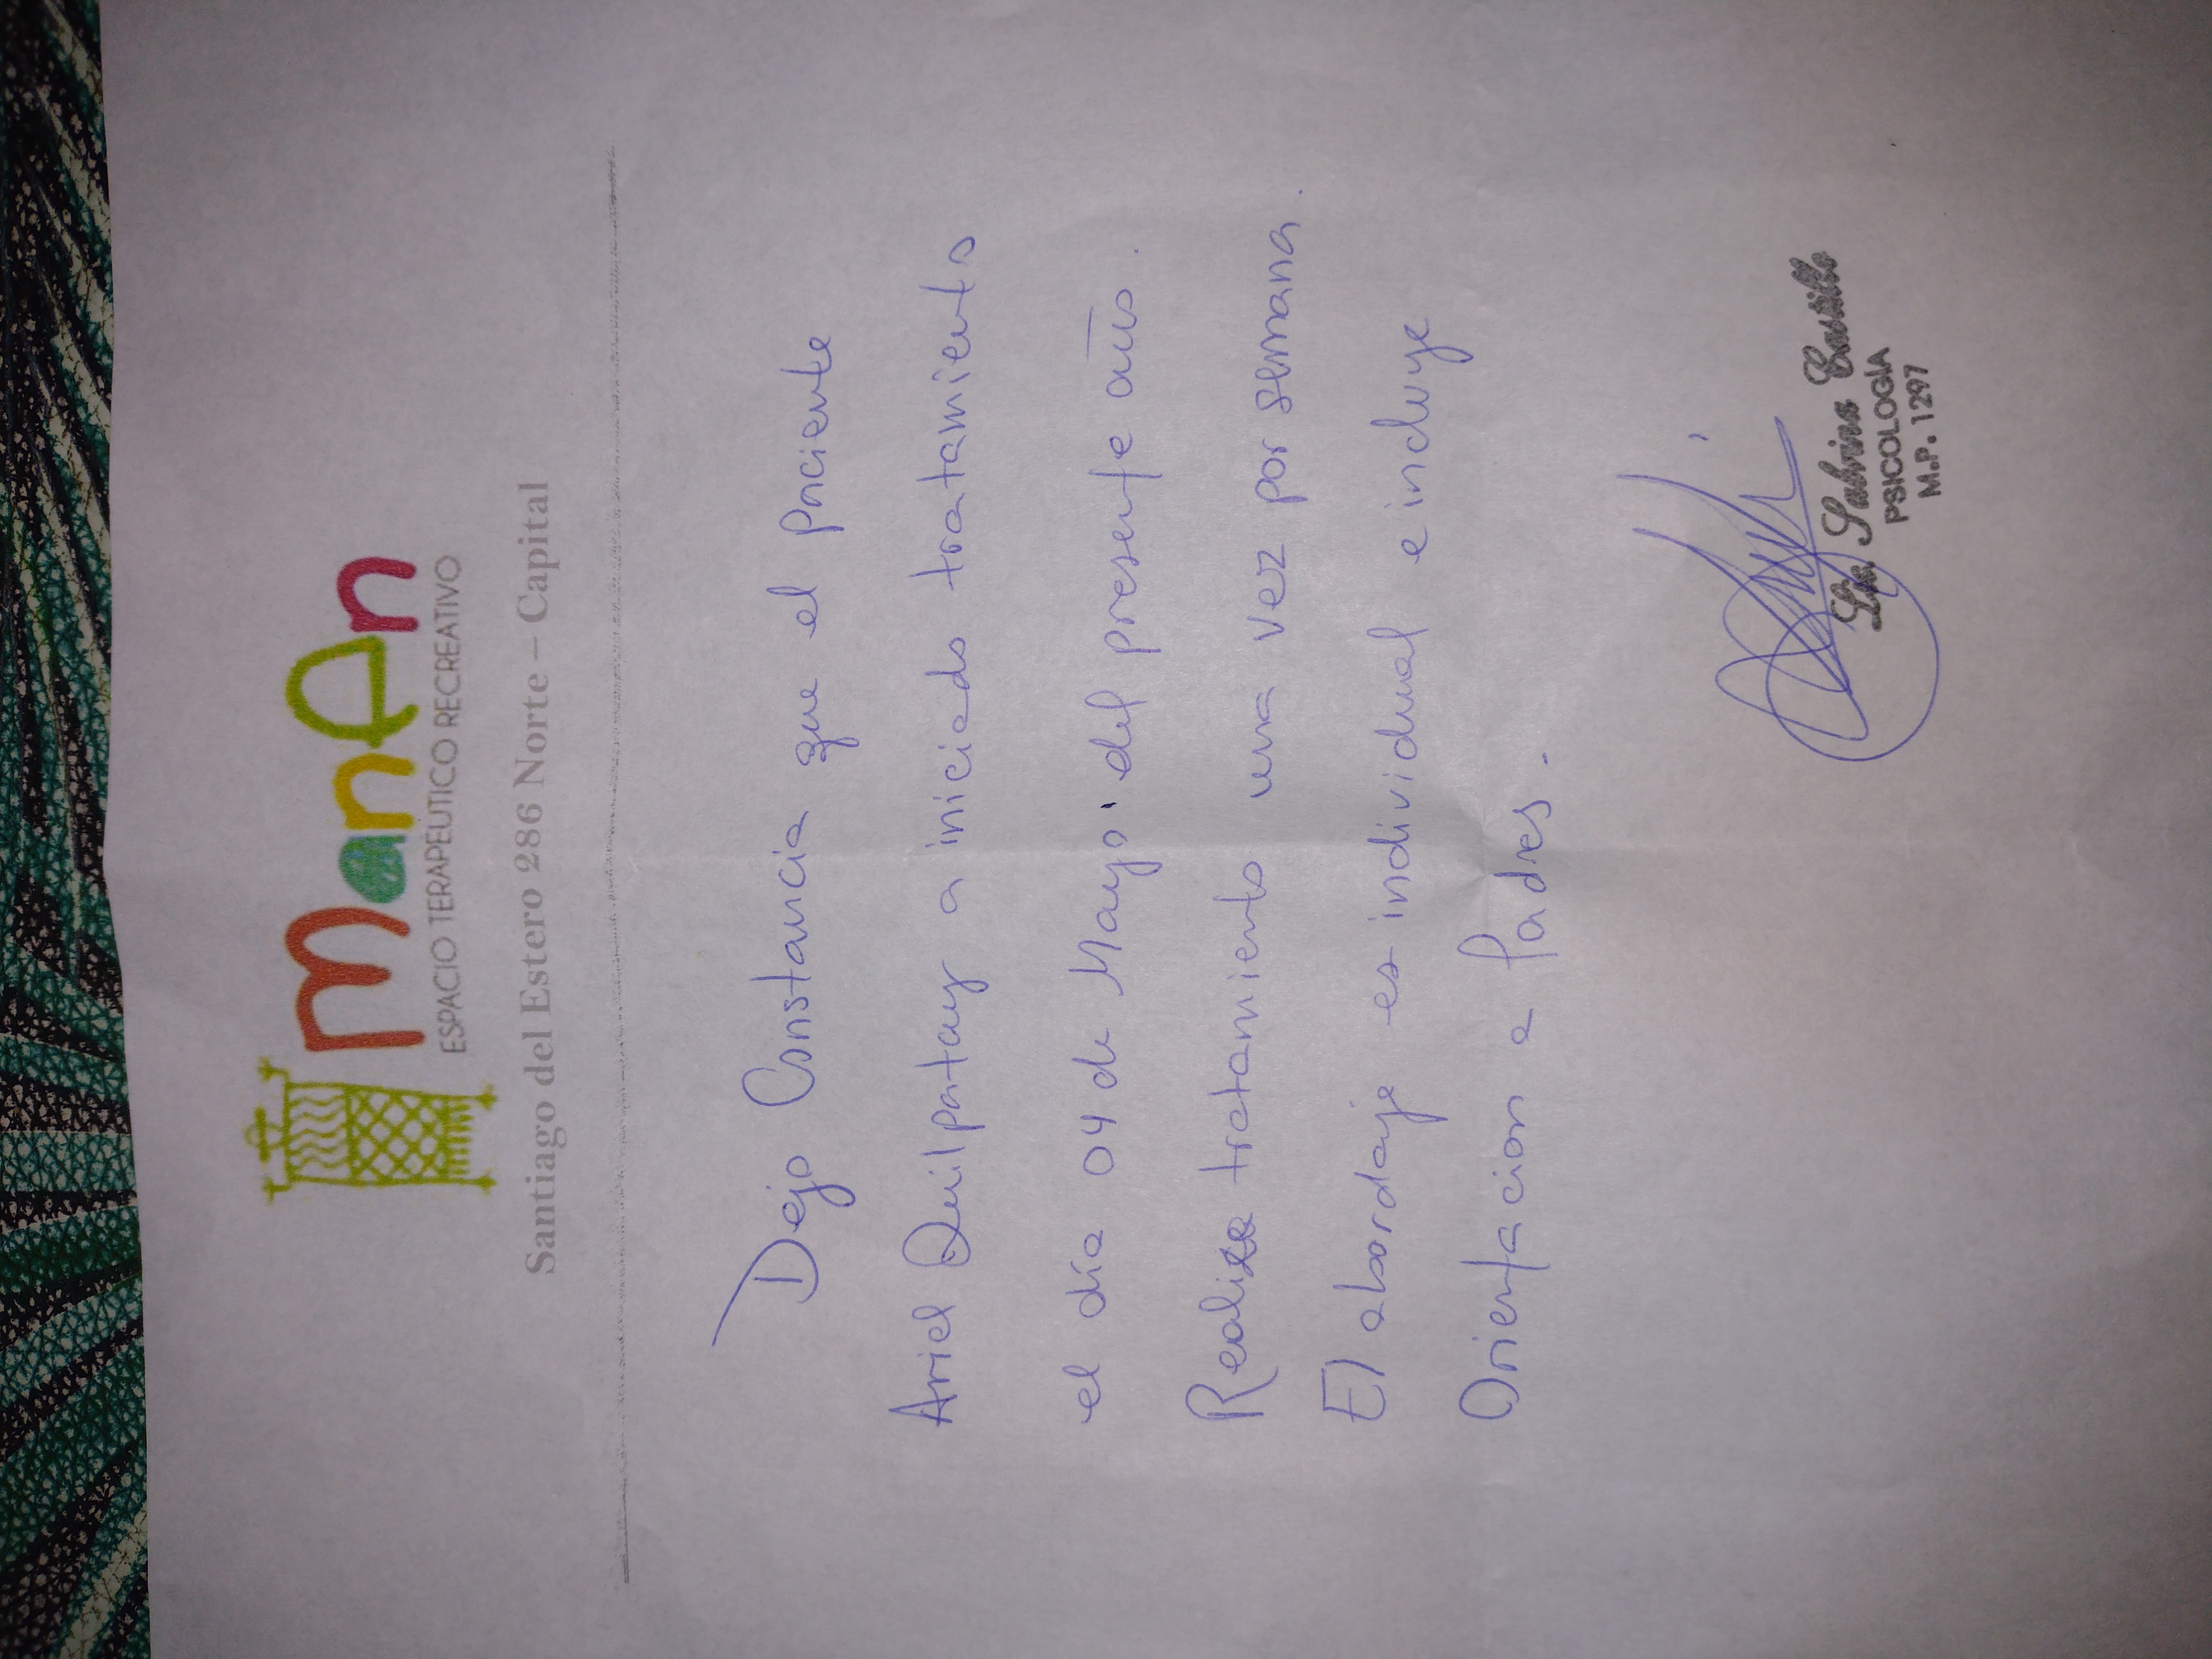 manAn
ESPACIO TERAPEUTICO RECREATIVO
Santiago del Estero 286 Norte – Capital
Dejo Constancia que el paciente
Ariel Quilpatay a iniciado tratamiento
el día 04 de Mayo del presente año.
Realiza tratamiento una vez por semana.
El abordaje es individual e incluye
Orientacion a Padres.
Lic. Sabrina Castillo
PSICOLOGÍA
M.P. 1297